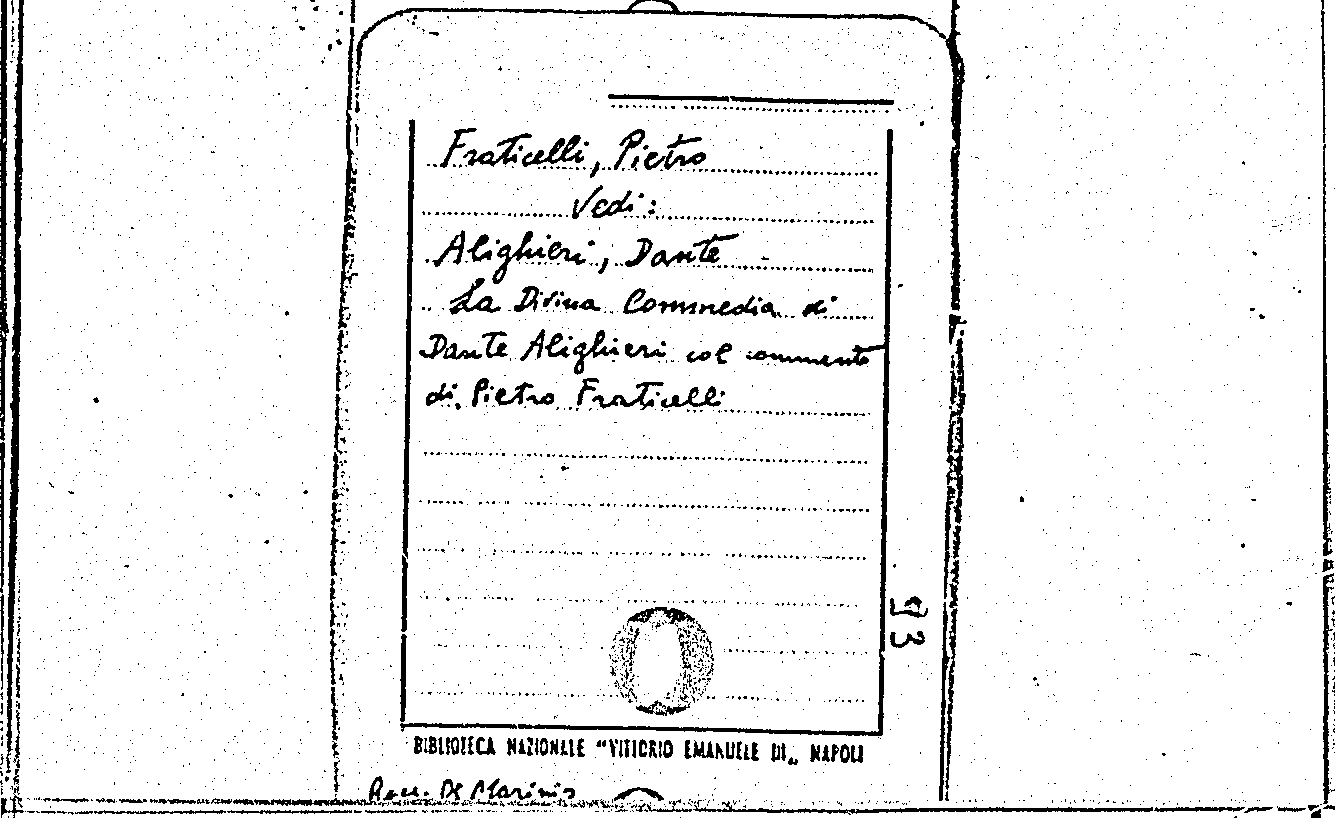 Fraticelli, Pietro
Vedi:
Alighieri, Dante
La Divina Commedia di
Dante Alighieri col commento
di Pietro Fraticelli
93
BIBLIOTECA NAZIONALE "VITTORIO EMANUELE III„ NAPOLI
Racc. De Marinis